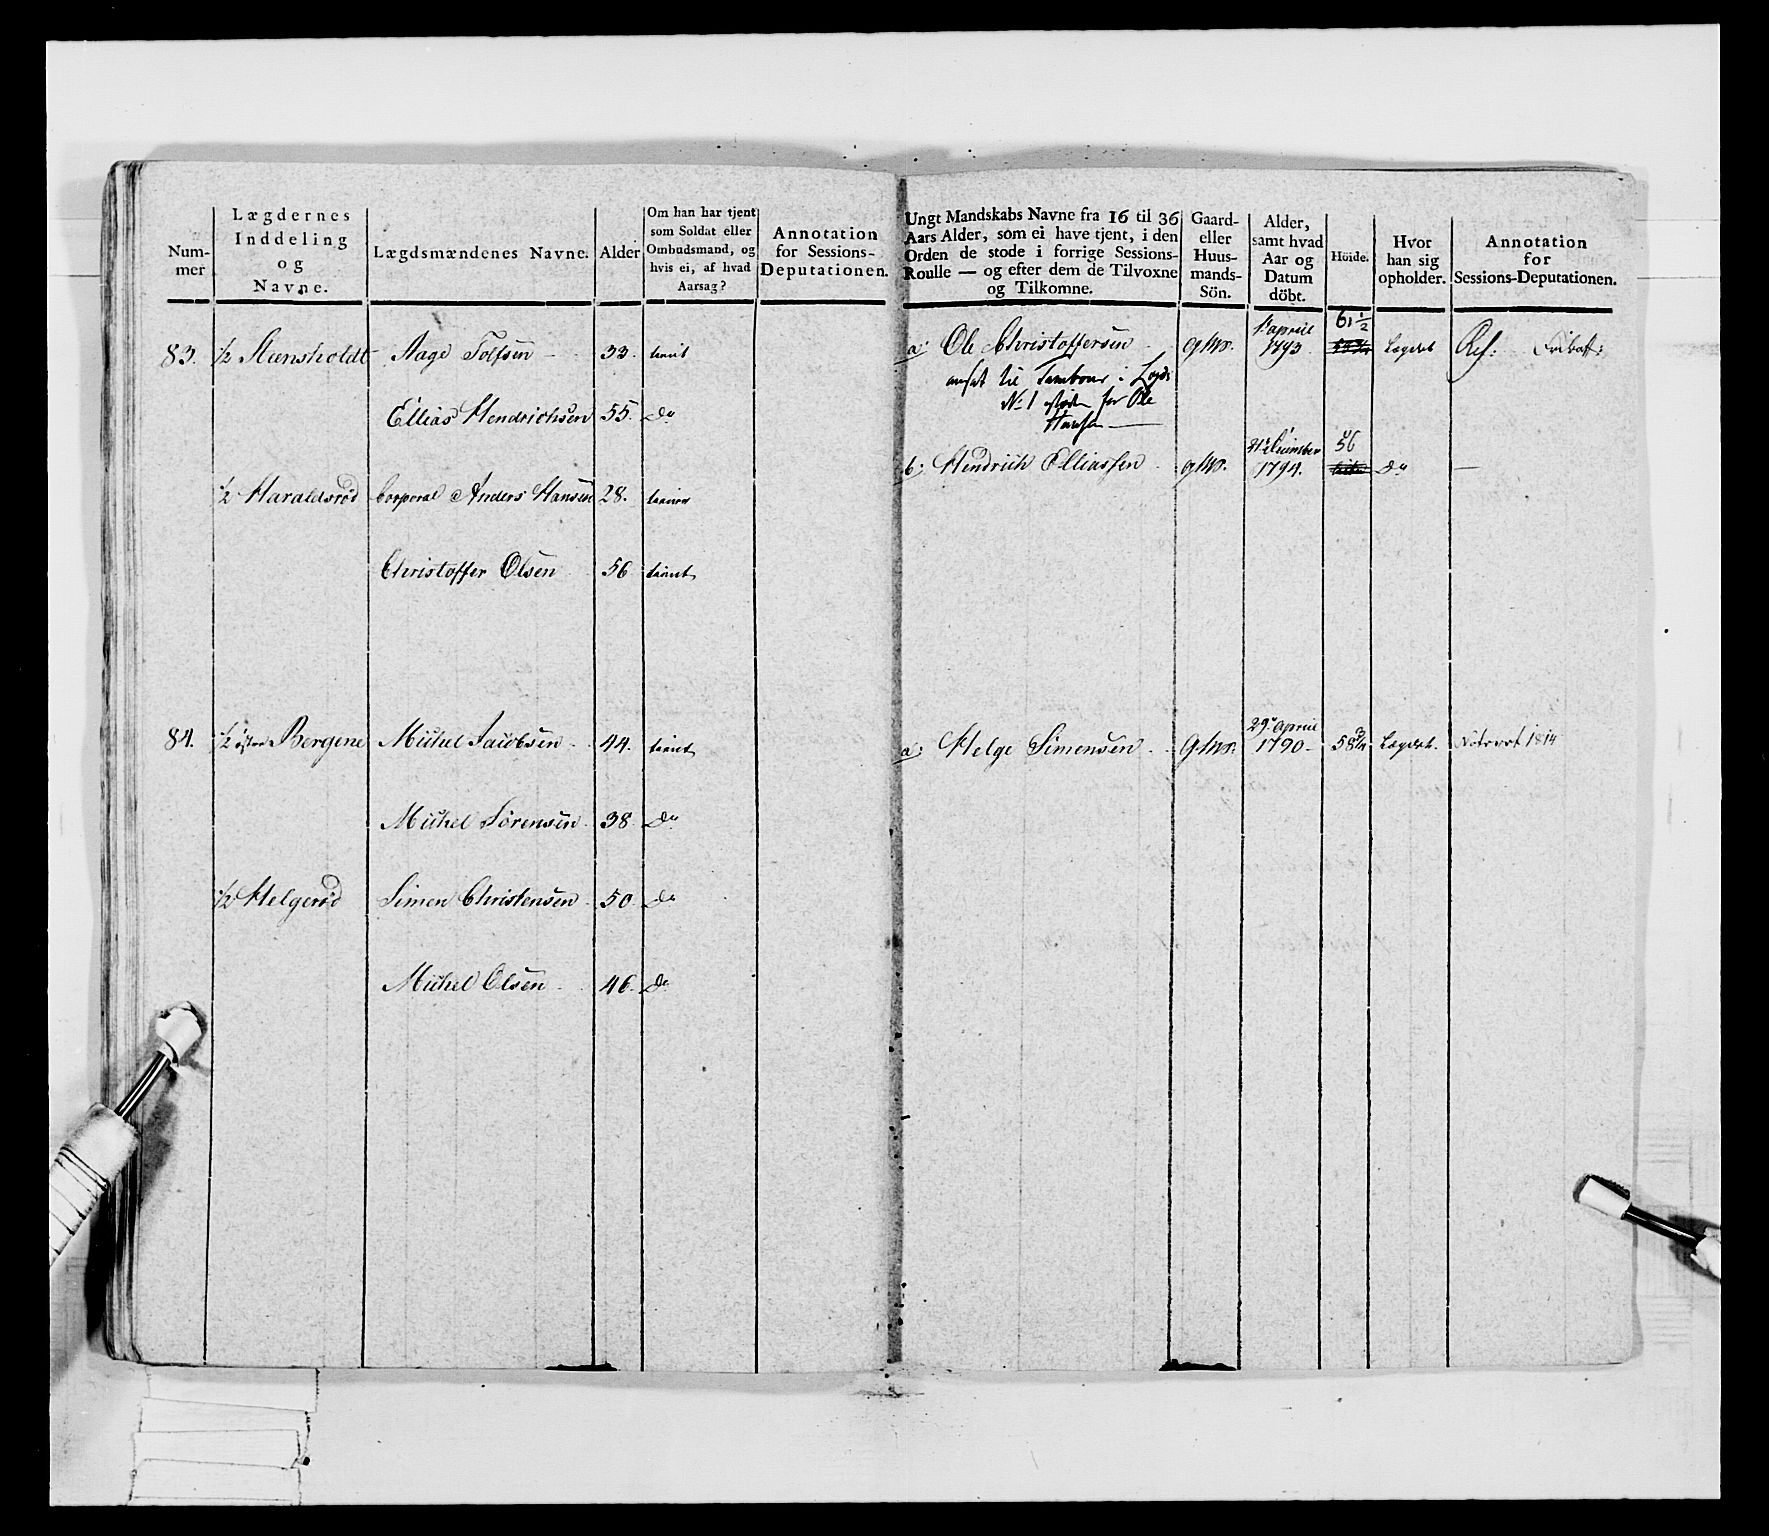 Num-
mer
Lægdernes
Inddeling
og
Navne.
Lægdsmændenes Navne.
Alder
Om han har tjent
som Soldat eller
Ombudsmand, og
hvis ei, af hvad
Aarsag?
Annotation
for Sessions-
Deputationen.
83. 1/2 Steensholdt Aage Tolfsen 33. tient
Ellias Hendrichsen 55. Do
1/2 Haraldsrød Corporal Anders Hansen 28.
Christoffer Olsen 56 tient
84. 1/2 østre Bergene Michel Jacobsen 44. tient
Michel Sørensen 38. Do
1/2 Helgerød Simen Christensen 50. Do
Michel Olsen 46. Do
Ungt Mandskabs Navne fra 16 til 36
Aars Alder, som ei have tjent, i den
Orden de stode i forrige Sessions-
Roulle — og efter dem de Tilvoxne
og Tilkomne.
Gaard-
eller
Huus-
mands-
Sön.
Alder,
samt hvad
Aar og
Datum
döbt.
Höide.
Hvor
han sig
opholder.
Annotation
for
Sessions-Deputationen.
1 april 61 1/2
a: Ole Christoffersen 1793 Lægdet
ansat til Tambour i Legd:
No 1 for Ole
Hansen
56
b: Hendrich Elliassen 1794. Do —
29 april
a: Helge Simensen 1790 58 3/4 Lægdet. 1814